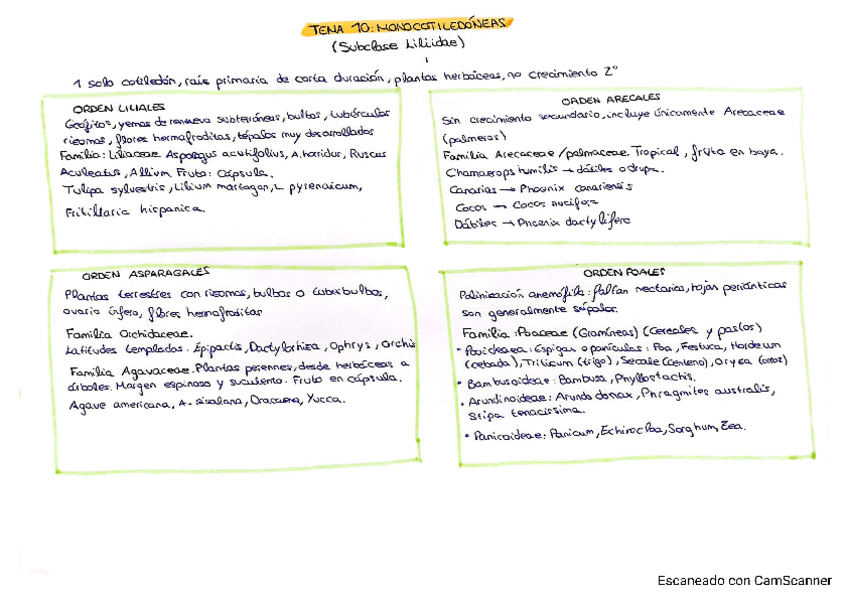 TEMA 10: MONOCOTILEDÓNEAS
(Subclase Liliidae)
1 solo cotiledón, raís primaria de corta duración, plantas herbáceas, no crecimiento 2º
ORDEN LILIALES
Geófitos, yemas de renuevo subterráneos, bulbos, tubérculos
rizomas, flores hermafroditas, tépalos muy desarrollados
Familia: Liliaceae. Asparagus acutifolius, A. horridus, Ruscus
Aculeatus, Allium. Fruto: Cápsula.
Tulipa sylvestris, Lilium martagon, L. pyrenaicum,
Fritillaria hispanica.
ORDEN ARECALES
Sin crecimiento secundario, incluye únicamente Arecaceae
(palmeras)
Familia Arecaceae/palmaceae. Tropical, fruto en baya.
Chamaerops humilis → dátiles o drupa.
Canarias → Phoenix canariensis
Cocos → Cocos nucifera
Dátiles → Phoenix dactylifera
ORDEN ASPARAGALES
Plantas terrestres con rizomas, bulbos o tuberbulbos,
ovario ínfero, flores hermafroditas
Familia Orchidaceae.
Latitudes templadas. Epipactis, Dactylorhiza, Ophrys, Orchis
Familia Agavaceae. Plantas perennes, desde herbáceas a
árboles. Margen espinoso y suculento. Fruto en cápsula.
Agave americana, A. sisalana, Dracaena, Yucca.
ORDEN POALES
Polinización anemófila: faltan nectarios, hojas periánticas
son generalmente súpalos.
Familia: Poaceae (Gramíneas) (Cereales y pastos)
• Pooideaea: Espigas o panículas: Poa, Festuca, Hordeum
(cebada), Triticum (trigo), Secale (centeno), Oryza (arroz)
• Bambusoideae: Bambusa, Phyllostachis.
• Arundinoideae: Arundo donax, Phragmites australis,
Stipa tenacissima.
• Panicoideae: Panicum, Echinocloa, Sorghum, Zea.
Escaneado con CamScanner